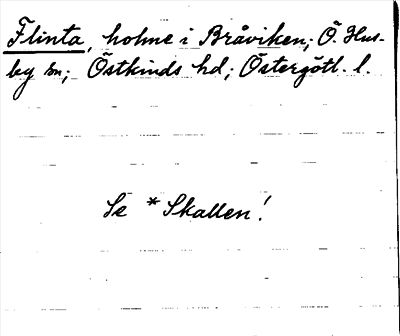 Flinta, holme i Bråviken; Ö. Hus-
by sn; Östkinds hd; Östergötl. l.
Se *Skallen!